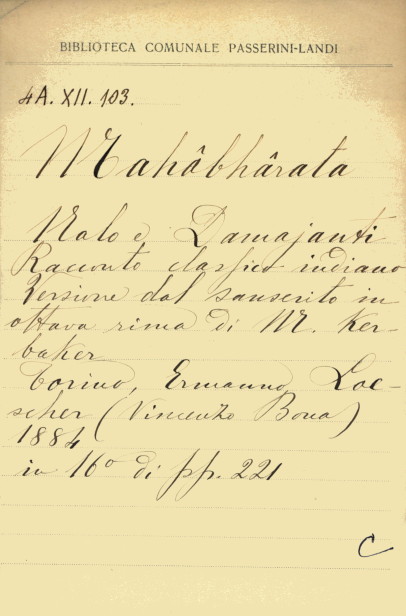 BIBLIOTECA COMUNALE PASSERINI-LANDI
4A. XII. 103.
Mahâbhârata
Nalo e Damajanti
Racconto classico indiano
Versione dal sanscrito in
ottava rima di M. Ker-
baker
Torino, Ermanno Loe-
scher (Vincenzo Bona)
1884
in 16° di pp. 221
C